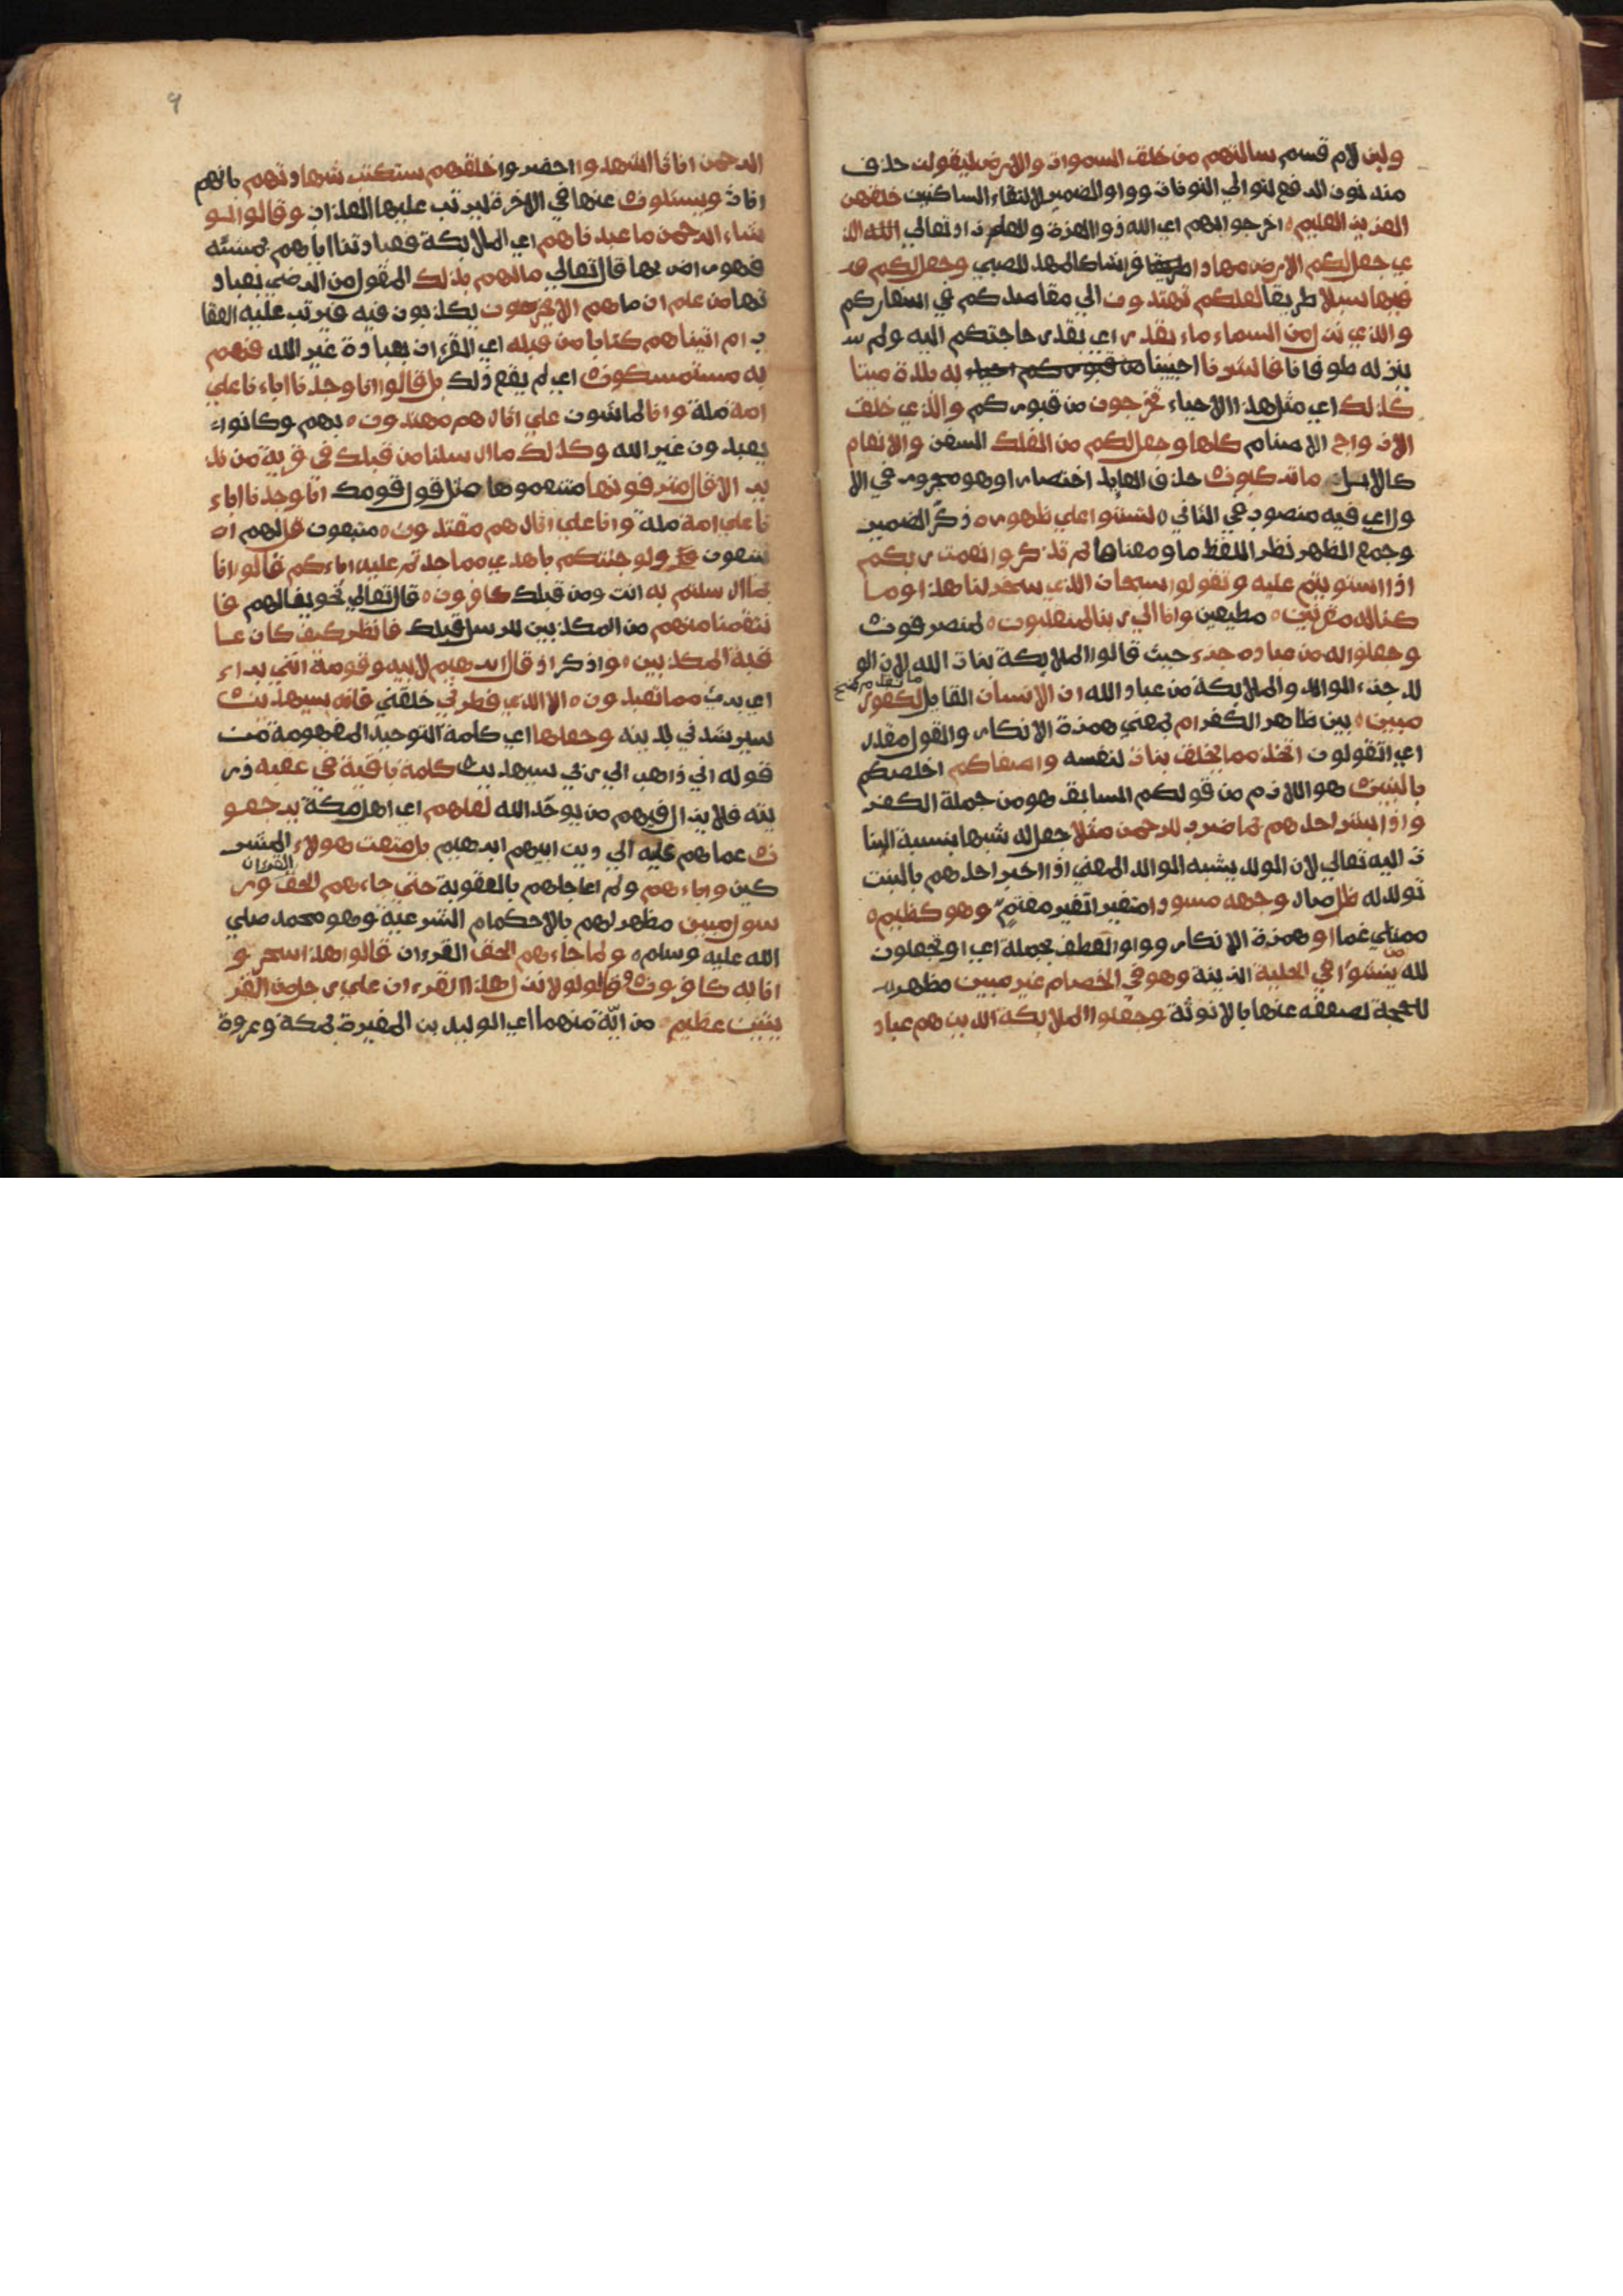 ولين لام قسم سالتهم من خلق السموات والارض ليقولن حذف
منه نون الرفع لتوالي النونات وواو الضمير لالتقاء الساكنين خلقهن
العزيز العليم اخر جوابهم اي الله ذوا العزة والعلم زاد تعالي الذ
ي جعل لكم الارض مهادا فراشا كالمهد للصبي وجعل لكم
فيها سبلا طريقا لعلكم تهتدون الي مقاصدكم في اسفاركم
والذي نزل من السماء ماء بقدر اي بقدر حاجتكم اليه ولم
ينزله طوفانا فانشرنا احيينا به بلدة ميتا
كذلك اي مثل هذا الاحياء تخرجون من قبوركم والذي خلق
الازواج الاصنام كلها وجعل لكم من الفلك السفن والانعام
كالابل ما تركبون حذف العايد اختصارا وهو مجرور في الا
ول اي فيه منصوب في الثاني لتستوا علي ظهوره ذكر الضمير
وجمع الظهر نظر اللفظ ما ومعناها ثم تذكروا نعمت ربكم
اذا استويتم عليه وتقولوا سبحان الذي سخر لنا هذا وما
كنا له مقرنين مطيعين وانا الي ربنا لمنقلبون لمنصرفون
وجعلوا له من عباده جزء حيث قالوا الملايكة بنات الله لان الو
لد جزء الوالد والملايكة من عباد الله ان الانسان القايل ما تقدم لكفور
مبين بين ظاهر الكفر ام بمعني همزة الانكار والقول مقدر
اي اتقولون اتخذ مما يخلق بنات لنفسه واصفاكم اخلصكم
بالبنين هو اللازم من قولكم السابق هو من جملة الكفر
واذا بشر احدهم بما ضرب للرحمن مثلا جعل له شبها بنسبة البنا
ت اليه تعالي لان الولد يشبه الوالد المعني اذا اخبر احدهم بالبنت
تولد له ظل صار وجهه مسودا متغيرا تغير مغتم وهو كظيم
ممتلي غما او همزة الانكار وواو العطف بجملة اي او تجعلون
لله من ينشؤا في الحلية الزينة وهو في الخصام غير مبين مظهر
للحجة لضعفه عنها بالانوثة وجعلوا الملايكة الذين هم عباد
الرحمن اناثا اشهدوا احضروا خلقهم ستكتب شهادتهم بانهم
اناث ويسئلون عنها في الاخرة ليرتب عليها العذاب وقالوا لو
شاء الرحمن ما عبدناهم اي الملايكة فعبادتنا اياهم بمشيئته
فهو راض بها قال تعالي ما لهم بذلك المقول من الرضي بعباد
تها من علم ان ما هم الا يخرصون يكذبون فيه فيرتب عليه العقا
ب ام اتيناهم كتابا من قبله اي القرءان بعبادة غير الله فهم
به مستمسكون اي لم يقع ذلك بل قالوا انا وجدنا اباءنا علي
امة ملة وانا لماشون علي اثارهم مهتدون بهم وكانوا
يعبدون غير الله وكذلك ما ارسلنا من قبلك في قرية من نذ
ير الا قال مترفوها متنعموها مثل قول قومك انا وجدنا اباء
نا علي امة ملة وانا علي اثارهم مقتدون متبعون قل لهم
تتبعون ولو جئتكم باهدي مما وجدتم عليه اباءكم قالوا انا
بما ارسلتم به انت ومن قبلك كافرون قال تعالي تخويفا لهم فا
نتقمنا منهم من المكذبين للرسل قبلك فانظر كيف كان عا
قبة المكذبين واذكر اذ قال ابرهيم لابيه وقومه انني براء
اي بريء مما تعبدون الا الذي فطرني خلقني فانه سيهدين
سيرشدني لدينه وجعلها اي كلمة التوحيد المفهومة من
قوله اني ذاهب الي ربي سيهدين كلمة باقية في عقبه ذر
يته فلا يزال فيهم من يوحد الله لعلهم اي اهل مكة يرجعو
ن عما هم عليه الي دين ابيهم ابرهيم بل متعت هولاء المشر
كين واباءهم ولم اعاجلهم بالعقوبة حتي جاءهم الحق القرءان ور
سول مبين مظهر لهم بالاحكام الشرعية وهو محمد صلي
الله عليه وسلم ولما جاءهم الحق القرءان قالوا هذا سحر و
انا به كافرون وقالوا لولا نزل هذا القرءان علي رجل من القر
يتين عظيم من اية منهما اي الوليد بن المغيرة بمكة وعروة